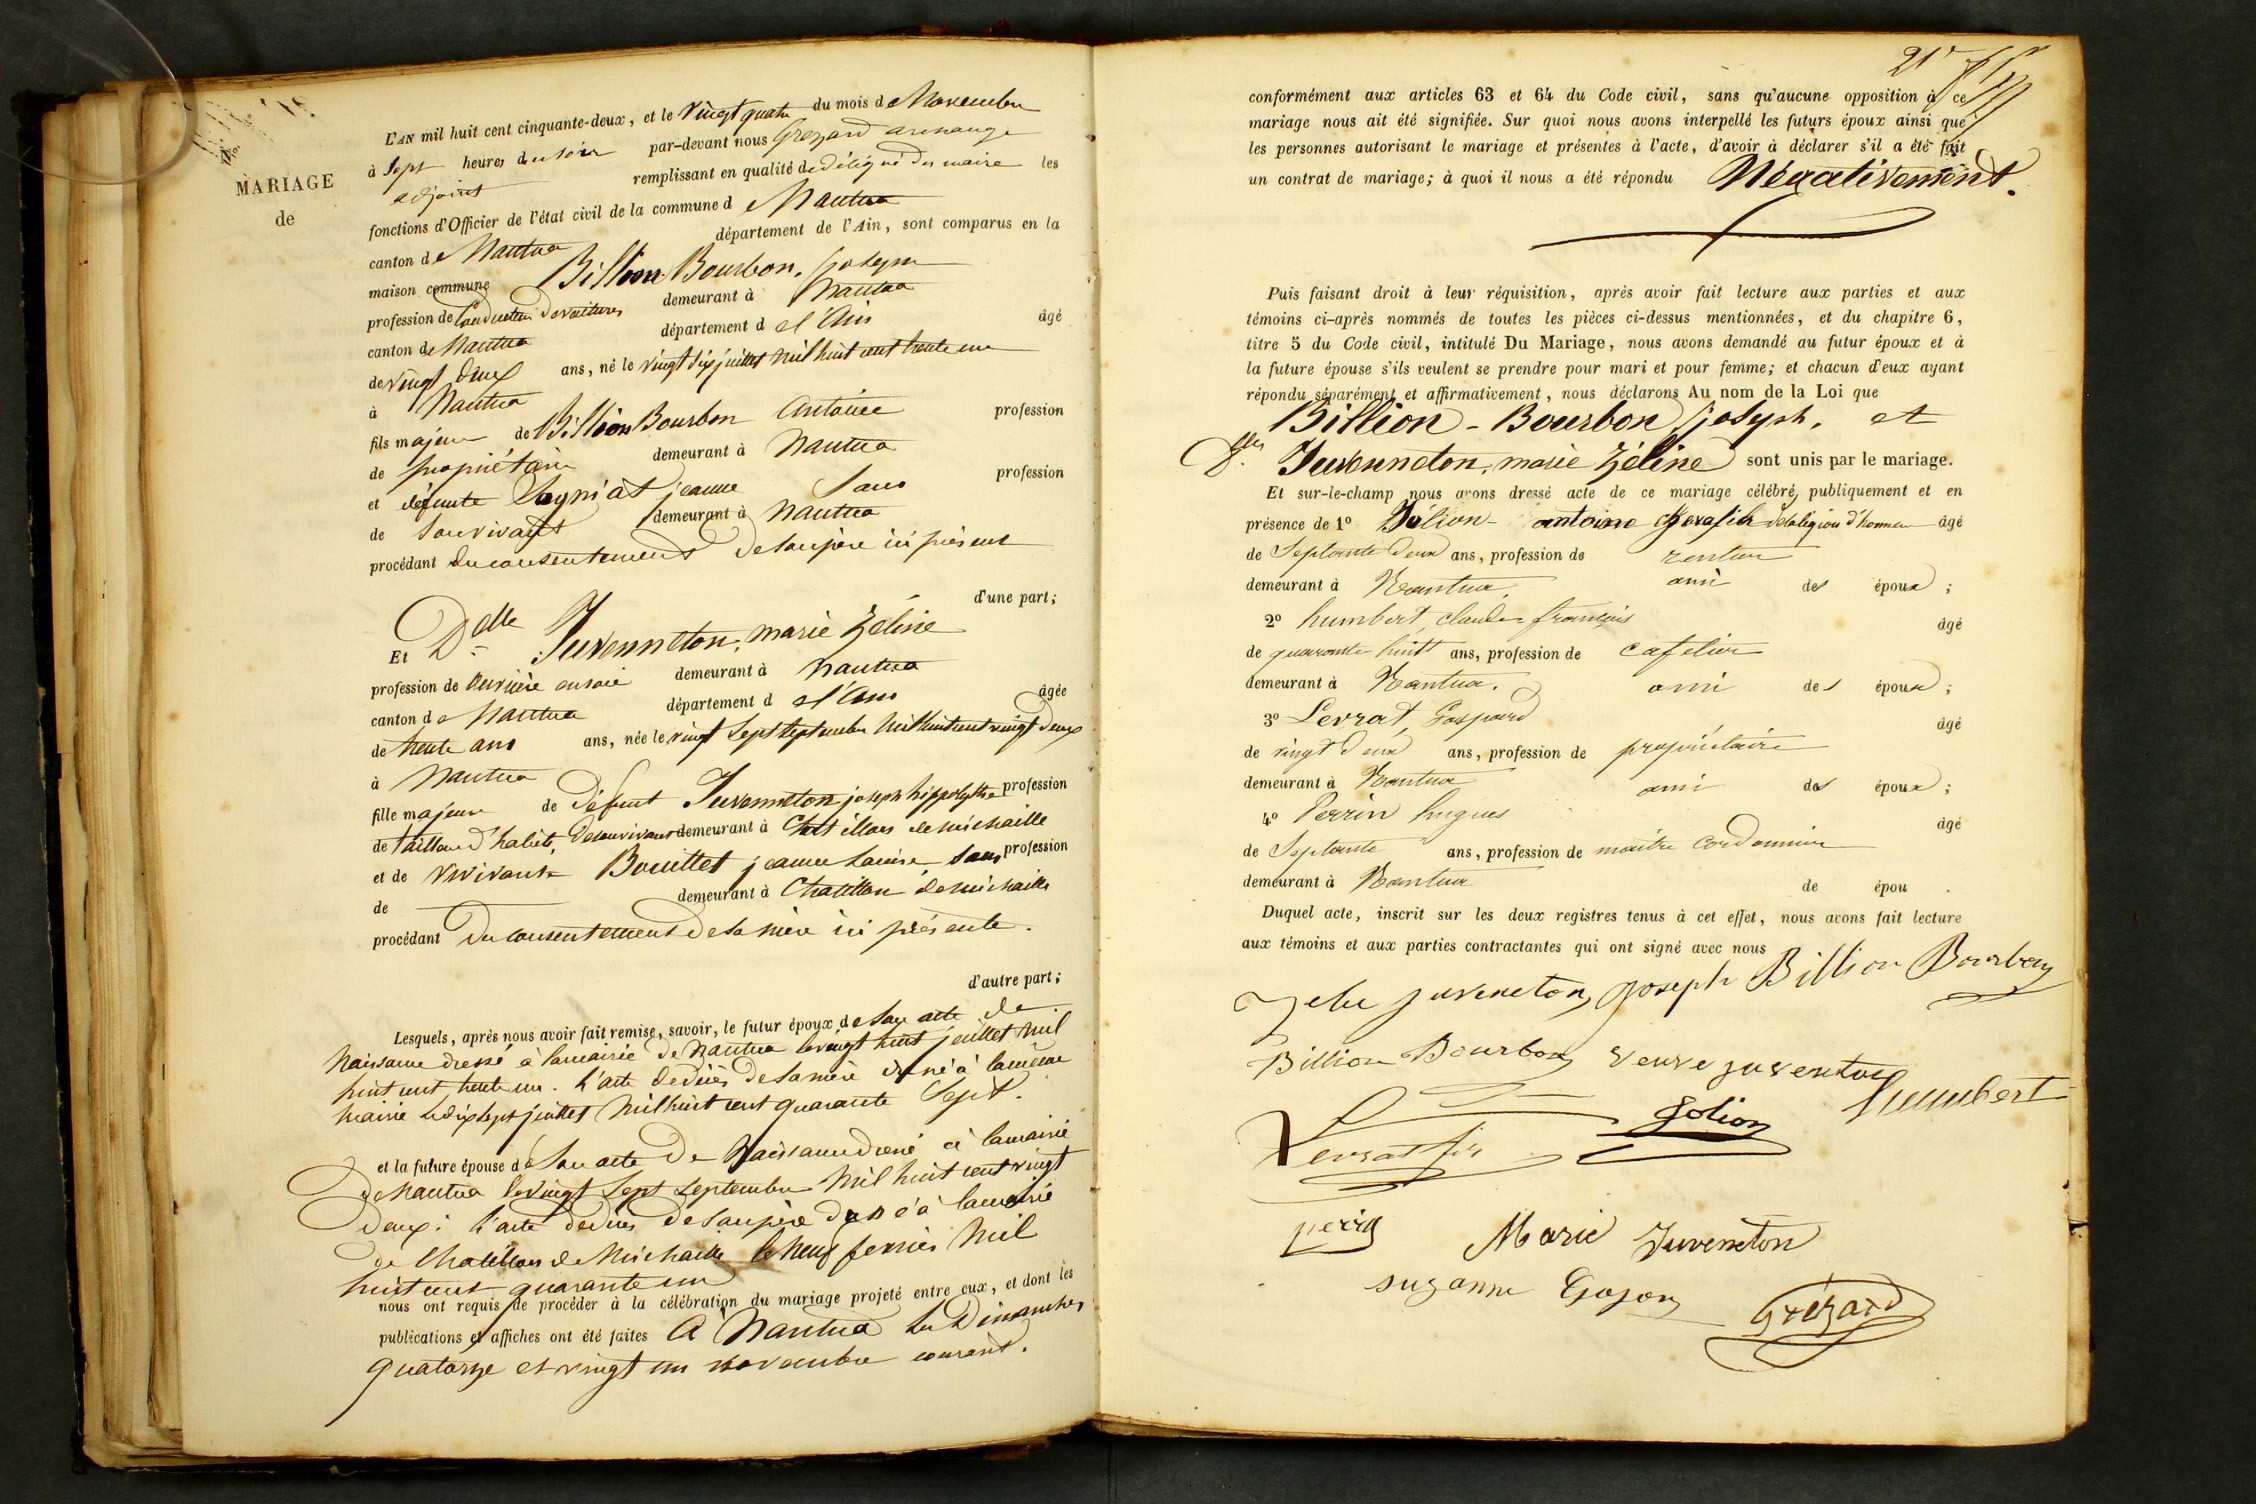 MARIAGE
de
L'AN mil huit cent cinquante-deux, et le Vingt quatre du mois de Novembre
à Sept heures du soir par-devant nous Grezard
adjoint remplissant en qualité de délégué du maire les
fonctions d'Officier de l'état civil de la commune de Nantua
canton de Nantua département de l'Ain, sont comparus en la
maison commune Billion Bourbon, Joseph
profession de Conducteur de voitures demeurant à Nantua
canton de Nantua département de l'Ain âgé
de vingt deux ans, né le vingt six juillet mil huit cent trente un
à Nantua
fils majeur de Billion Bourbon Antoine profession
de propriétaire demeurant à Nantua
et défunte jeanne Sans profession
de Son vivant demeurant à Nantua
procédant du consentement de Son père ici présent
d'une part;
Et Delle Juvenneton, marie Zéline
profession de Ouvrière en soie demeurant à Nantua
canton de Nantua département de l'Ain âgée
de trente ans ans, née le vingt Sept Septembre mil huit cent vingt deux
à Nantua
fille majeur de défunt Juvenneton joseph hippolythe profession
de tailleur d'habits, de son vivant demeurant à Chatillon de michaille
et de vivante Bouillet jeanne Louise Sans profession
de demeurant à Chatillon de michaille
procédant du consentement de Sa mère ici présente.
d'autre part;
Lesquels, après nous avoir fait remise, savoir, le futur époux de Son acte de
Naissance dressé à la mairie de Nantua le vingt huit juillet mil
huit cent trente un. L'acte de décès de Sa mère dressé à la même
mairie le dix Sept juillet mil huit cent quarante Sept.
et la future épouse de Son acte de Naissance dressé à la mairie
de Nantua le vingt Sept Septembre mil huit cent vingt
deux: L'acte de décès de Son père dressé à la mairie
de Chatillon de Michaille le neuf février mil
huit cent quarante un
nous ont requis de procéder à la célébration du mariage projeté entre eux, et dont les
publications et affiches ont été faites à Nantua les Dimanches
quatorze et vingt un novembre courant.
21
conformément aux articles 63 et 64 du Code civil, sans qu'aucune opposition à ce
mariage nous ait été signifiée. Sur quoi nous avons interpellé les futurs époux ainsi que
les personnes autorisant le mariage et présentes à l'acte, d'avoir à déclarer s'il a été fait
un contrat de mariage; à quoi il nous a été répondu Négativement.
Puis faisant droit à leur réquisition, après avoir fait lecture aux parties et aux
témoins ci-après nommés de toutes les pièces ci-dessus mentionnées, et du chapitre 6,
titre 5 du Code civil, intitulé Du Mariage, nous avons demandé au futur époux et à
la future épouse s'ils veulent se prendre pour mari et pour femme; et chacun d'eux ayant
répondu séparément et affirmativement, nous déclarons Au nom de la Loi que
Billion - Bourbon joseph, et
Dlle Juvenneton, marie Zéline sont unis par le mariage.
Et sur-le-champ nous avons dressé acte de ce mariage célébré publiquement et en
présence de 1º Jolion antoine chevalier de la légion d'honneur âgé
de Septante deux ans, profession de rentier
demeurant à Nantua, ami des époux;
2º humbert, claude françois âgé
de quarante huit ans, profession de cafetier
demeurant à Nantua. ami des époux;
3º Levrat, Gaspard âgé
de vingt deux ans, profession de propriétaire
demeurant à Nantua ami des époux;
4º Perrin hugues âgé
de Septante ans, profession de maître cordonnier
demeurant à Nantua de épou .
Duquel acte, inscrit sur les deux registres tenus à cet effet, nous avons fait lecture
aux témoins et aux parties contractantes qui ont signé avec nous
juveneton, Joseph Billion Bourbon
Billion Bourbon veuve juventon
Humbert
Jolion
Levrat fils
perrin
Marie Juveneton
suzanne Gojon
Grezard